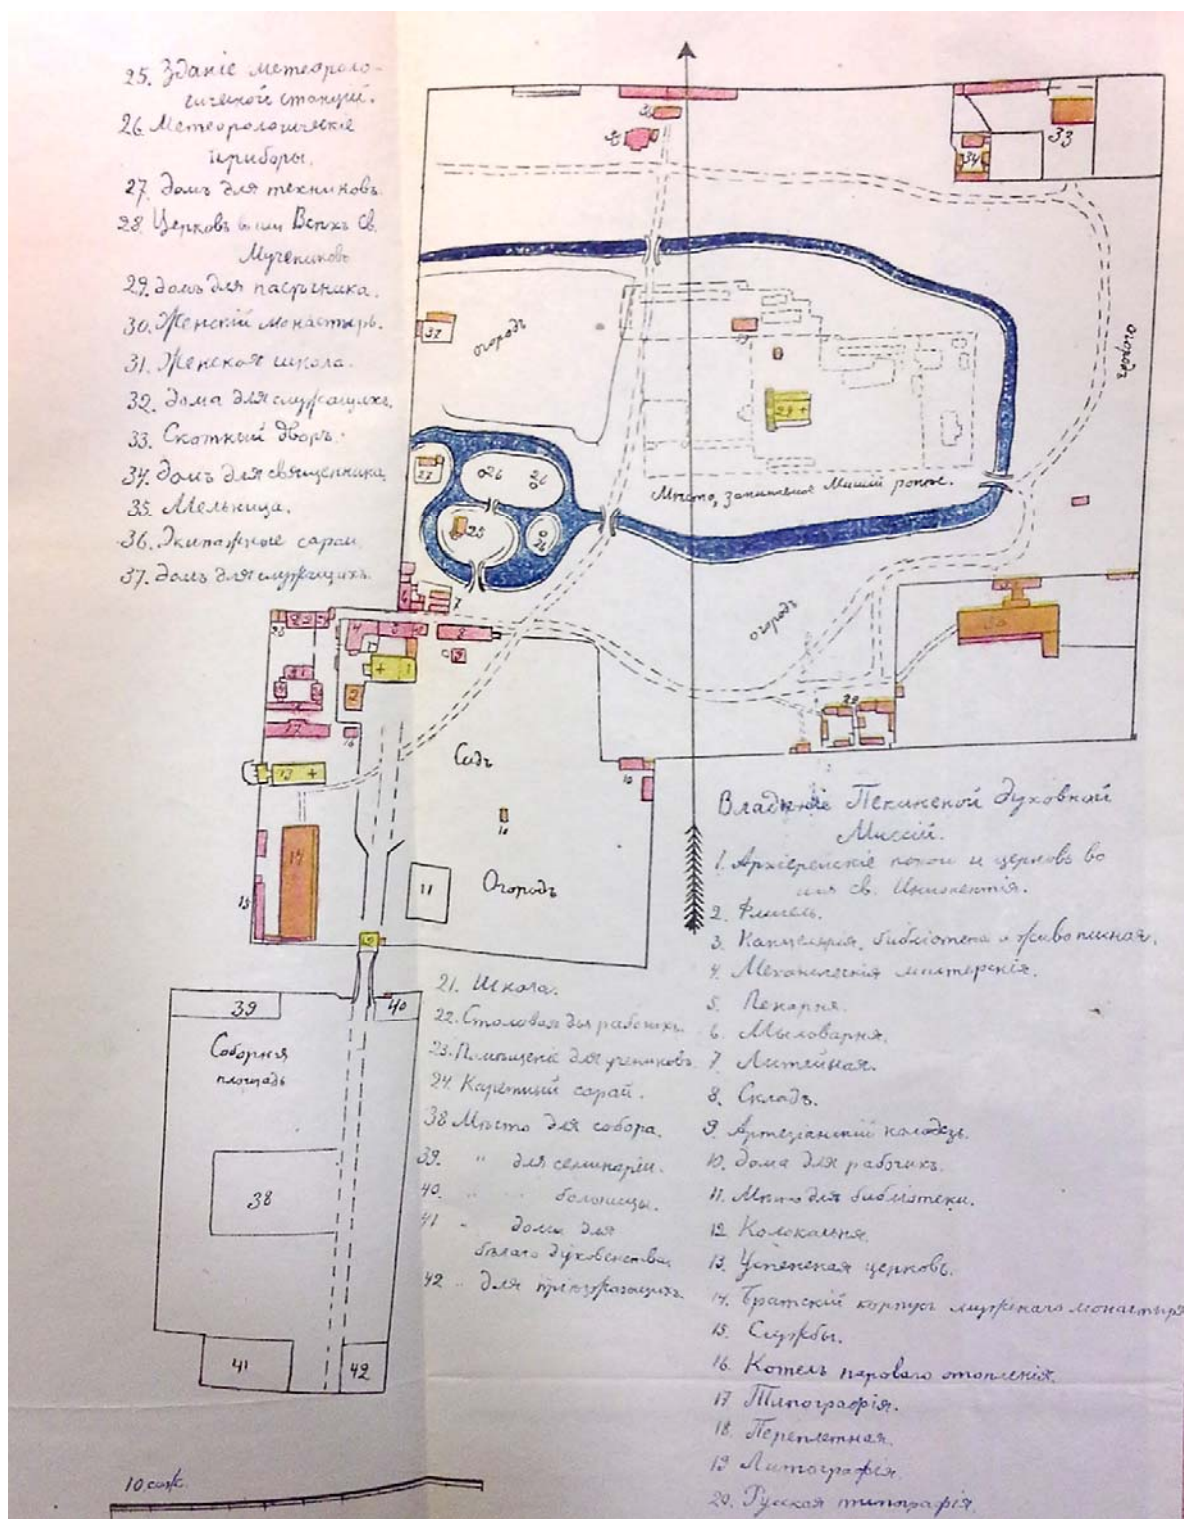 25. Зданіе метеороло-
гической станціи.
26 Метеорологическіе
приборы.
27. Домъ для техниковъ.
28. Церковь во имя Всѣхъ Св.
Мучениковъ
29. Домъ для пасѣчника.
30. Женскій монастырь.
31. Женская школа.
32. Дома для служащихъ.
33. Скотный дворъ.
34. Домъ для священника
35. Мельница.
36. Экипажные сараи.
37. Домъ для служащихъ.
33
34
32
огородъ
огородъ
28 +
27
26
25
26
Мѣсто, занимаемое Миссіей ранѣе.
7
огородъ
29
2
1
17
16
13 +
Садъ
10
10
14
15
11
Огородъ
39
40
Соборная
площадь
38
41
42
10 саж.
Владѣніе Пекинской Духовной
Миссіи.
1. Архіерейскіе покои и церковь во
имя св. Иннокентія.
2. Флигель.
3. Канцелярія, библіотека и живописная.
4. Механическія мастерскія.
5. Пекарня.
6. Мыловарня.
7. Литейная.
8. Складъ.
9. Артезіанскій колодезь.
10. Дома для рабочихъ.
11. Мѣсто для библіотеки.
12. Колокольня.
13. Успенская церковь.
14. Братскій корпусъ мужскаго монастыря
15. Службы.
16. Котелъ пароваго отопленія.
17 Типографія.
18. Переплетная.
19 Литографія.
20. Русская типографія.
21. Школа.
22. Столовая для рабочихъ.
23. Помѣщеніе для учениковъ.
24. Каретный сарай.
38 Мѣсто для собора.
39. " для семинаріи.
40. " " больницы.
41 " дома для
бѣлаго духовенства.
42 " для пріѣзжающихъ.